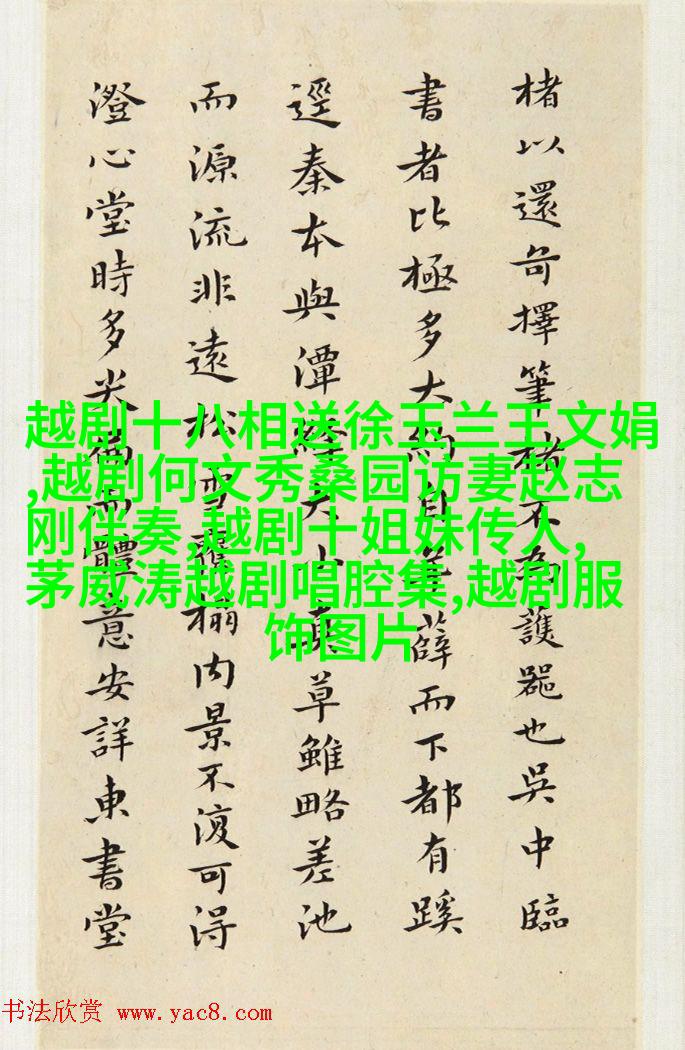 楮以還奇擇筆楮不為護器也吳中臨
書者比極多大約自羊薛而下都有蹊
逕秦本與潭絳大小真草雖略差池
而源流非遠松雪蘭榻內景不復可得
澄心堂時多尖而體意安詳東書堂
越剧十八相送徐玉兰王文娟
,越剧何文秀桑园访妻赵志
刚伴奏,越剧十姐妹传人,
茅威涛越剧唱腔集,越剧服
饰图片
书法欣赏 www.yac8.com